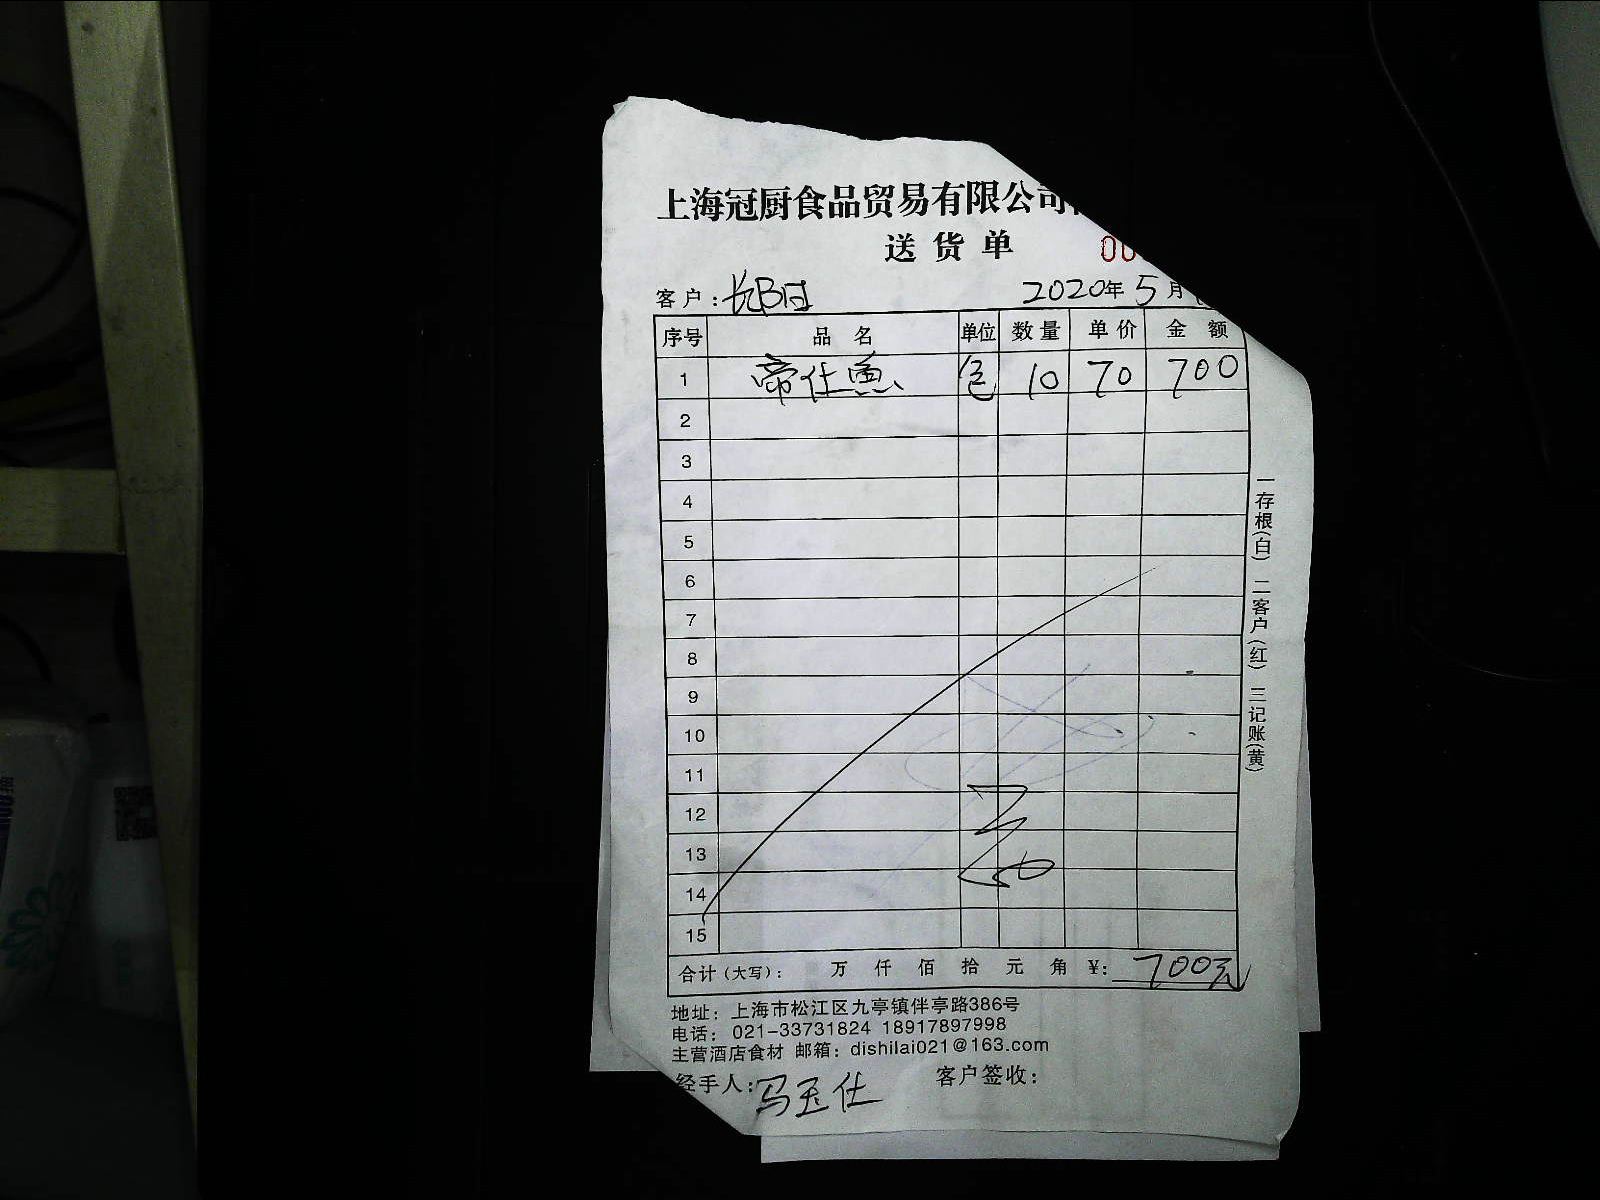 上海冠厨食品贸易有限公司
送货单
00
客户：长B日 2020年5月
序号 品名 单位 数量 单价 金额
1 帝仕鱼 包 10 70 700
2
3
4
5
6
7
8
9
10
11
12
13
14
15
合计（大写）： 万 仟 佰 拾 元 角 ¥：700元
地址：上海市松江区九亭镇伴亭路386号
电话：021-33731824 18917897998
主营酒店食材 邮箱：dishilai021@163.com
经手人：马玉仕 客户签收：
一存根(白) 二客户(红) 三记账(黄)